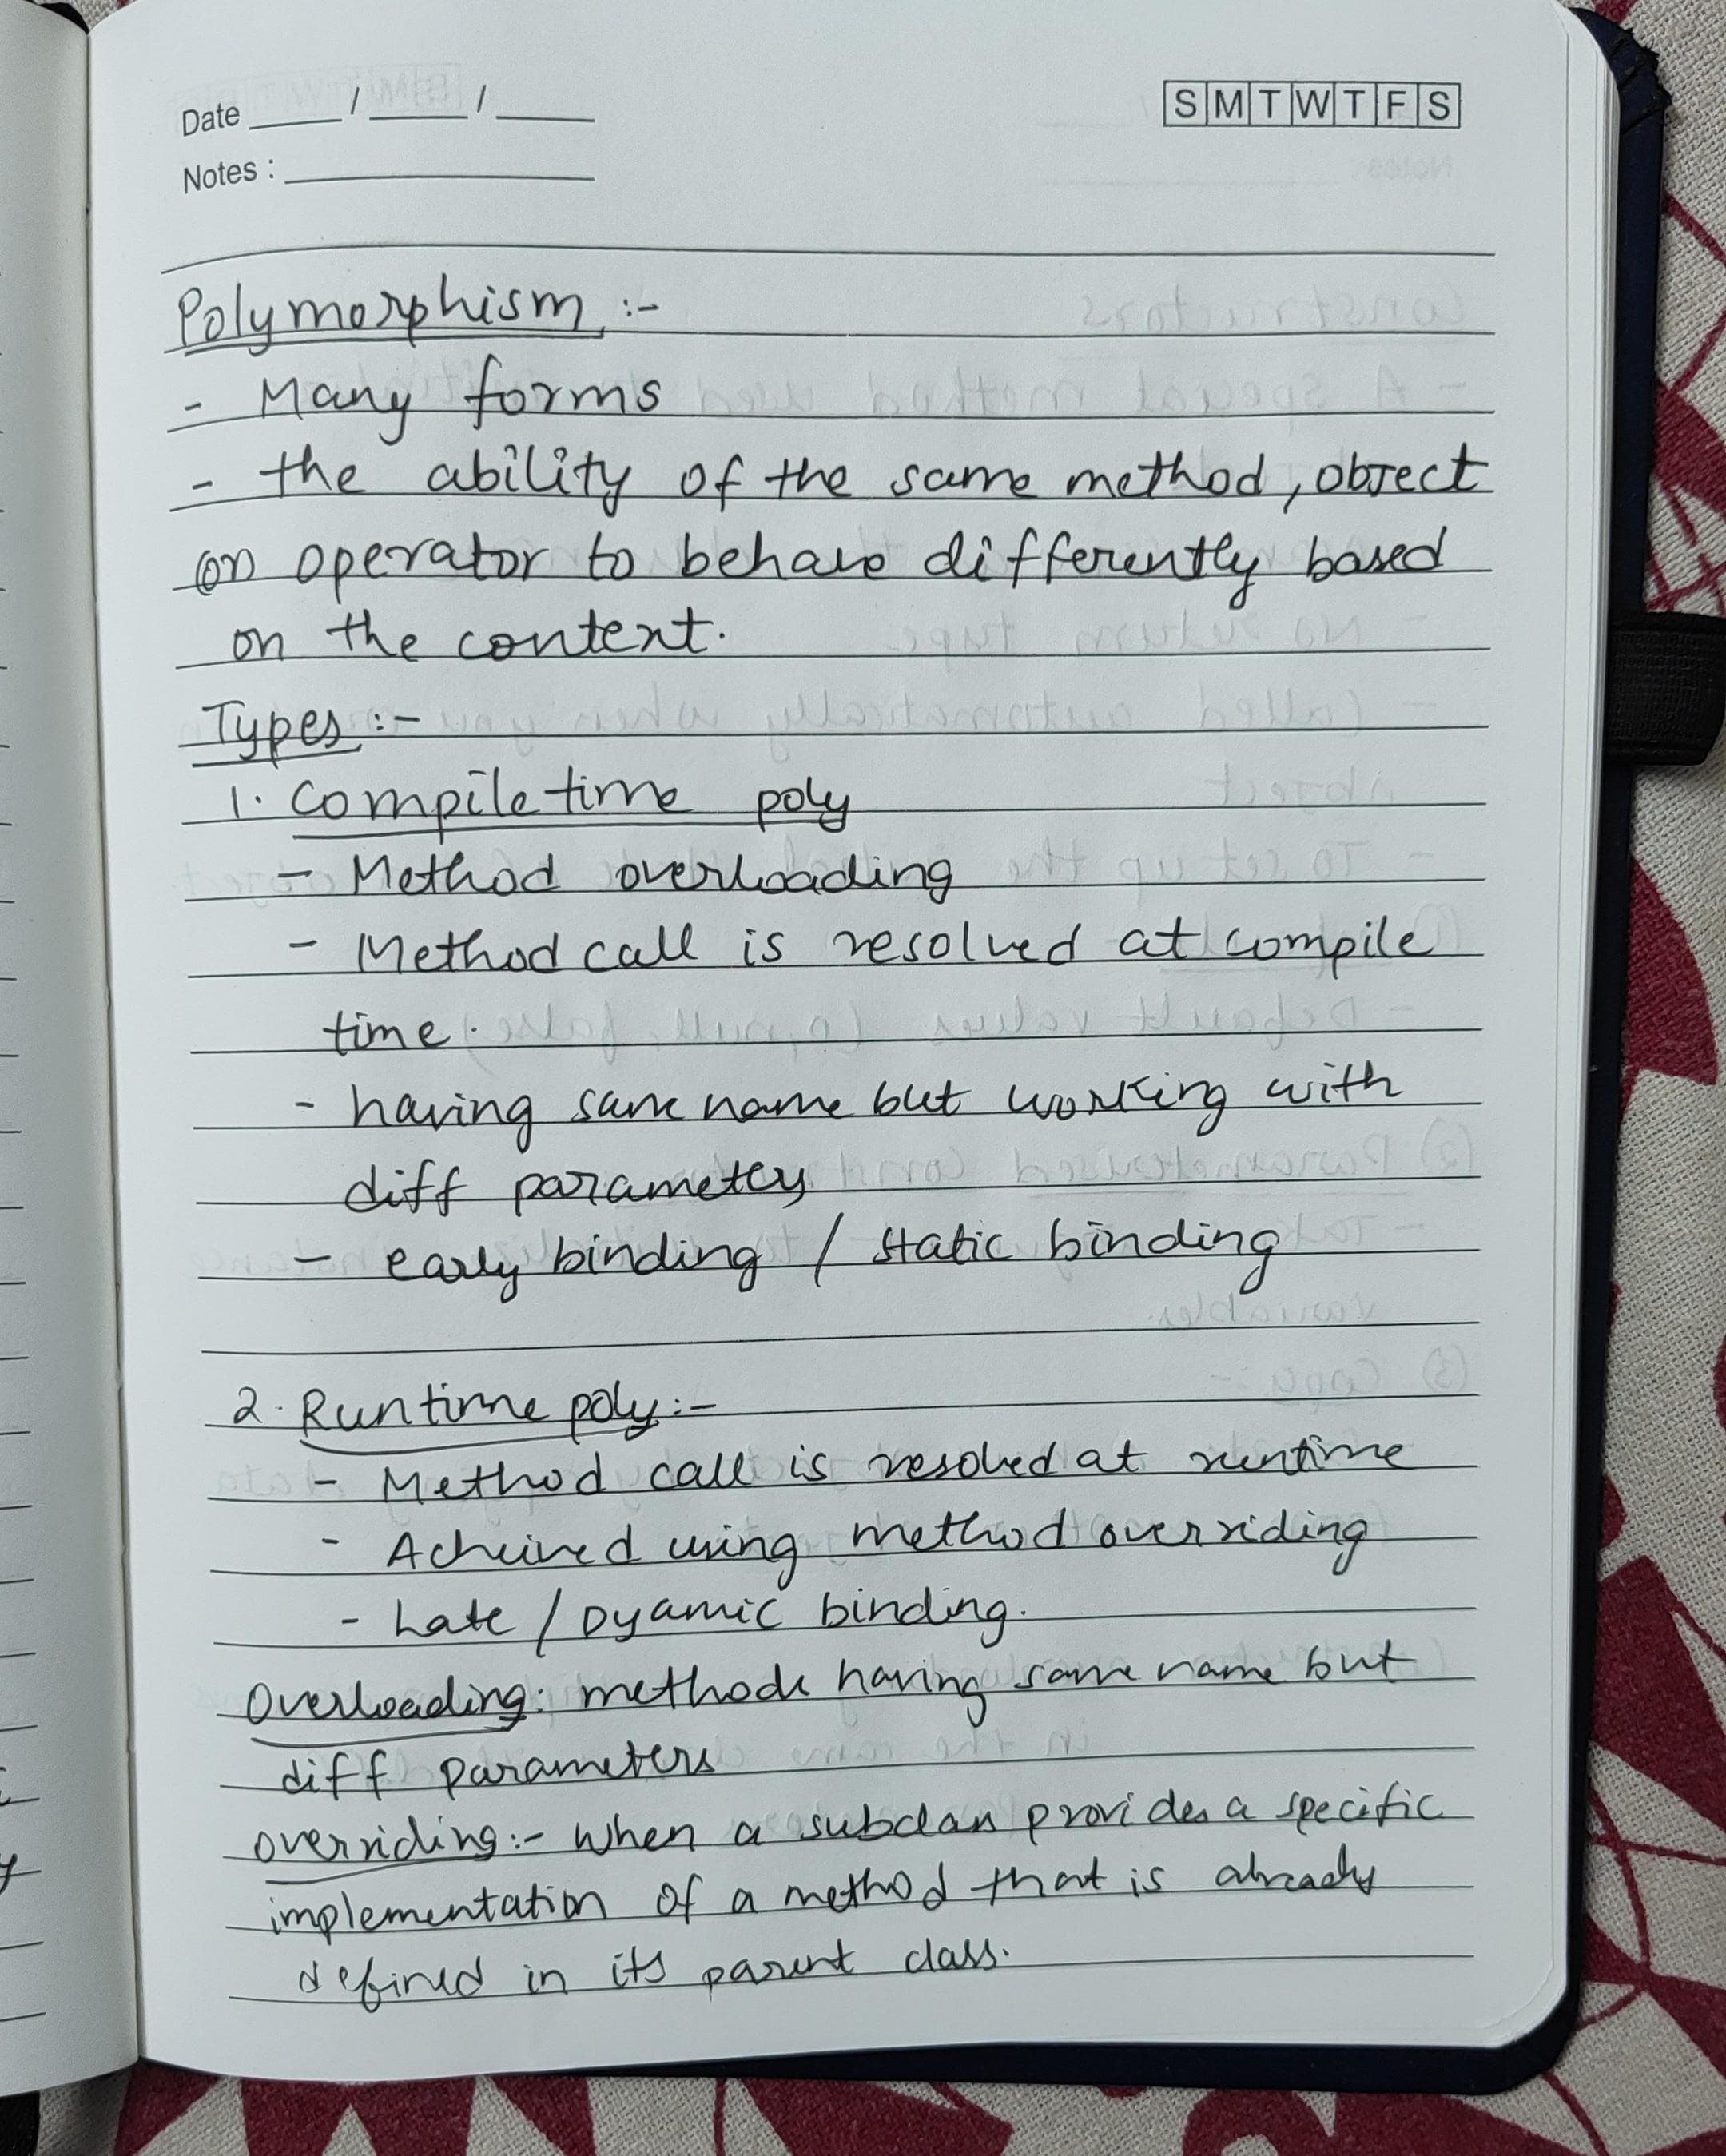 Date ____ / ____ / ____
S M T W T F S
Notes : ____
Polymorphism :-
- Many forms
- the ability of the same method, object
(or) operator to behave differently based
on the context.
Types :-
1. Compile time poly
- Method overloading
- Method call is resolved at compile
time.
- having same name but working with
diff parameters
- early binding / static binding
2. Runtime poly :-
- Method call is resolved at runtime
- Acheived using method overriding
- Late / Dyamic binding.
Overloading : methods having same name but
diff parameters
overriding :- when a subclass provides a specific
implementation of a method that is already
defined in its parent class.